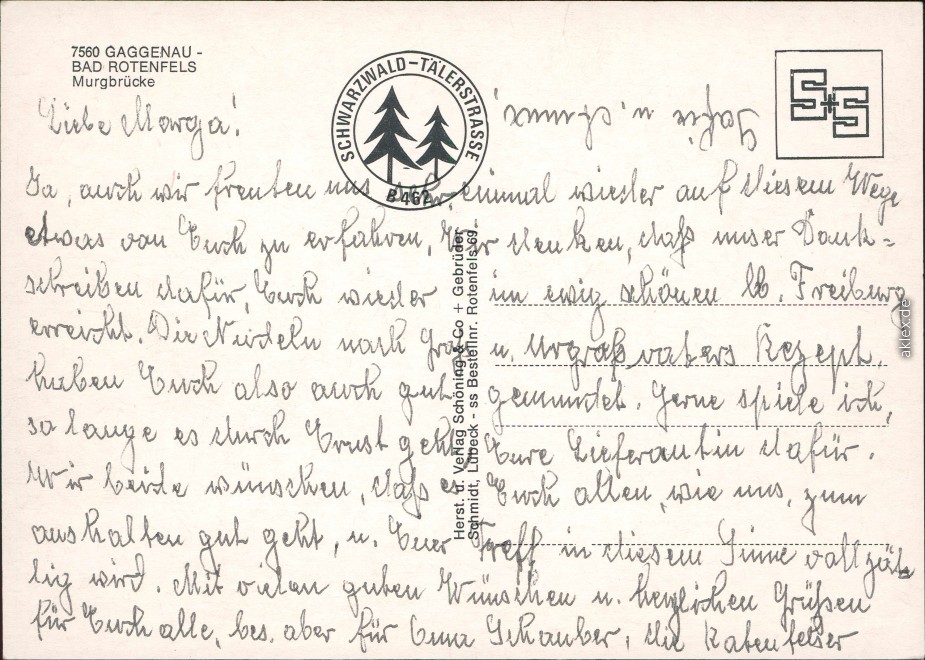 7560 GAGGENAU -
BAD ROTENFELS
Murgbrücke
SCHWARZWALD-TÄLERSTRASSE
B 462
S+S
Liebe Marga!
Ja, auch wir freuten uns sehr, einmal wieder auf diesem Wege
etwas von Euch zu erfahren, Wir denken, daß unser Dank=
schreiben dafür, Euch wieder im ewig schönen lb. Freiburg
erreicht. Die Nudeln nach Groß u. Urgroßvaters Rezept,
haben Euch also auch gut gemundet. Gerne spiele ich,
so lange es durch Ernst geht, Eure Lieferantin dafür.
Wir beide wünschen, daß es Euch allen, wie uns, zum
aushalten gut geht, u. Euer Treff in diesem Sinne vollzäh=
lig wird. Mit vielen guten Wünschen u. herzlichen Grüßen
für Euch alle, bes. aber für Schauber, die Rotenfelser
Herst. u. Verlag Schöning & Co + Gebrüder
Schmidt, Lübeck - ss Bestellnr. Rotenfels 69
aklex.de